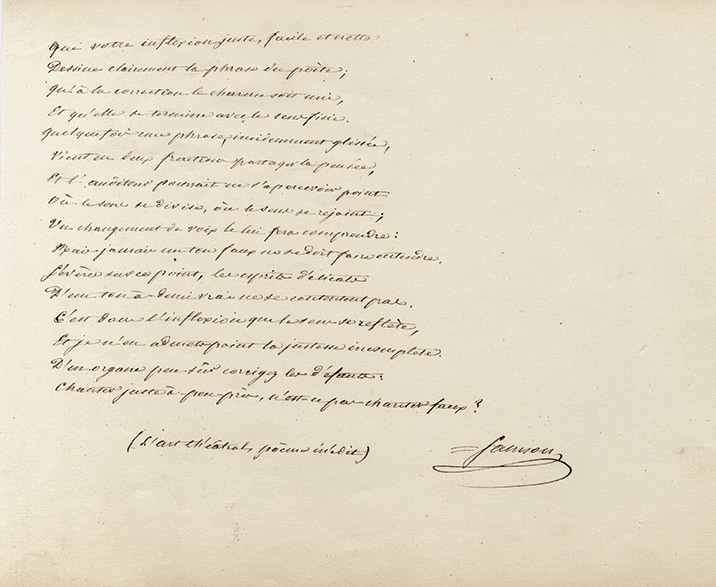 Que votre inflexion juste, facile et nette
Dessine clairement la phrase du poète;
Qu'à la correction le charme soit uni,
Et qu'elle se termine avec le sens fini.
Quelquefois une phrase, incidemment glissée,
Vient en deux fractions partager la pensée,
Et l'auditeur pourrait ne s'apercevoir point
Où le sens se divise, où le sens se rejoint;
Un changement de voix le lui fera comprendre:
Mais jamais un ton faux ne se doit faire entendre.
Sévères sur ce point, les esprits délicats
D'un ton à demi vrai ne se contentent pas.
C'est dans l'inflexion que le sens se reflète,
Et je n'en admets point la justesse incomplète.
D'un organe peu sûr corrigez les défauts:
Chanter juste à peu près, n'est-ce pas chanter faux?
(L'art théâtral, poème inédit)
Samson